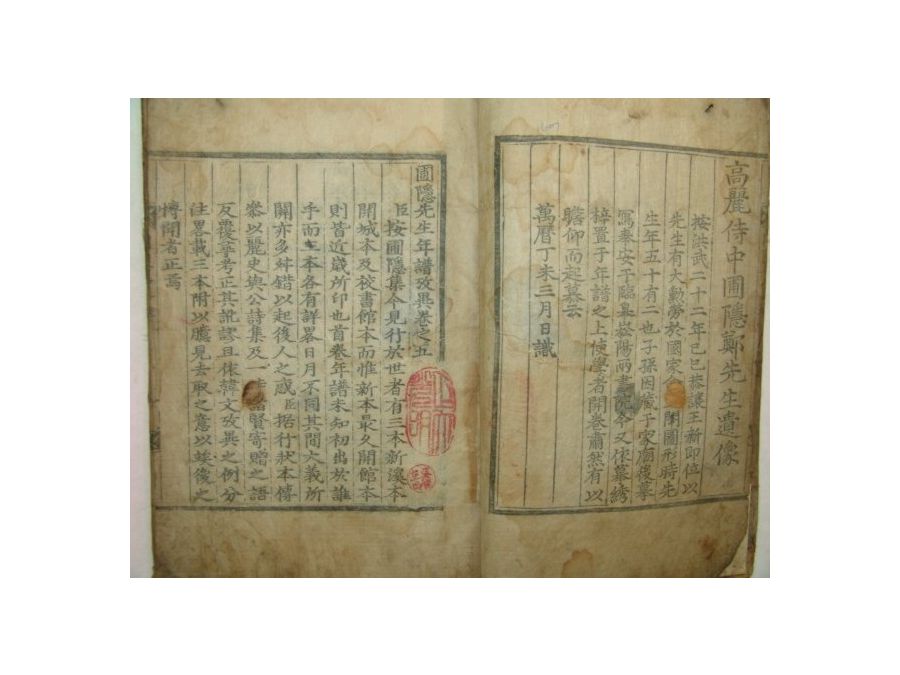 高麗侍中圃隱鄭先生遺像
按洪武二十二年己巳恭讓王新即位以
先生有大勳勞於國家命 閣圖形時先
生年五十有二也子孫因藏于家廟後摹
寫奉安于臨臯崧陽兩書院今又依摹綉
梓置于年譜之上使學者開卷肅然有以
瞻仰而起慕云
萬曆丁未三月日識
圃隱先生年譜攷異卷之五
臣按圃隱集今見行於世者有三本新溪本
開城本及校書館本而惟新本最久開館本
則皆近歲所印也首卷年譜未知初出於誰
手而三本各有詳畧日月不同其間大義所
關亦多舛錯以起後人之惑臣据行狀本傳
叅以麗史與公詩集及一時諸賢寄贈之語
反覆叅考正其訛謬且依韓文攷異之例分
注畧載三本附以臆見去取之意以竢後之
博聞者正焉